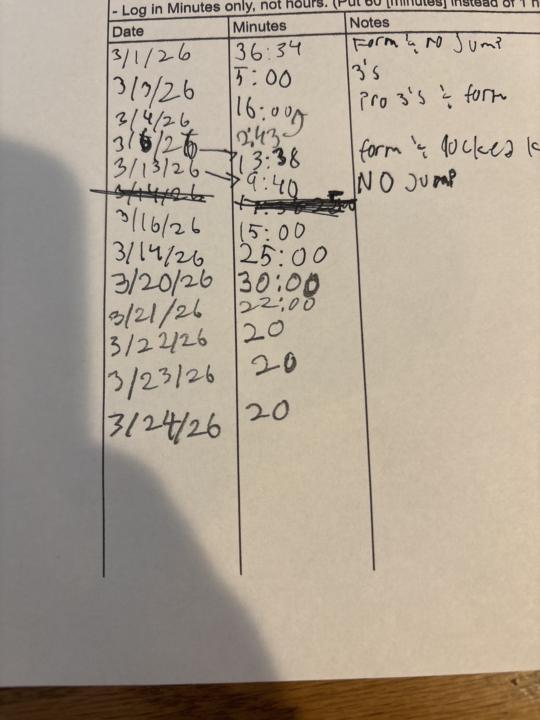 - Log in Minutes only, not hours. (Put 60 [minutes] instead of 1 h
Date Minutes Notes
3/1/26 36:34 Form & NO Jump
3/3/26 5:00 3's
3/4/26 16:00 Pro 3's & form
3/6/26 13:38 form & locked k
2:43
3/13/26 9:40 NO Jump
3/14/26
3/16/26 15:00
3/14/26 25:00
3/20/26 30:00
3/21/26 22:00
3/22/26 20
3/23/26 20
3/24/26 20